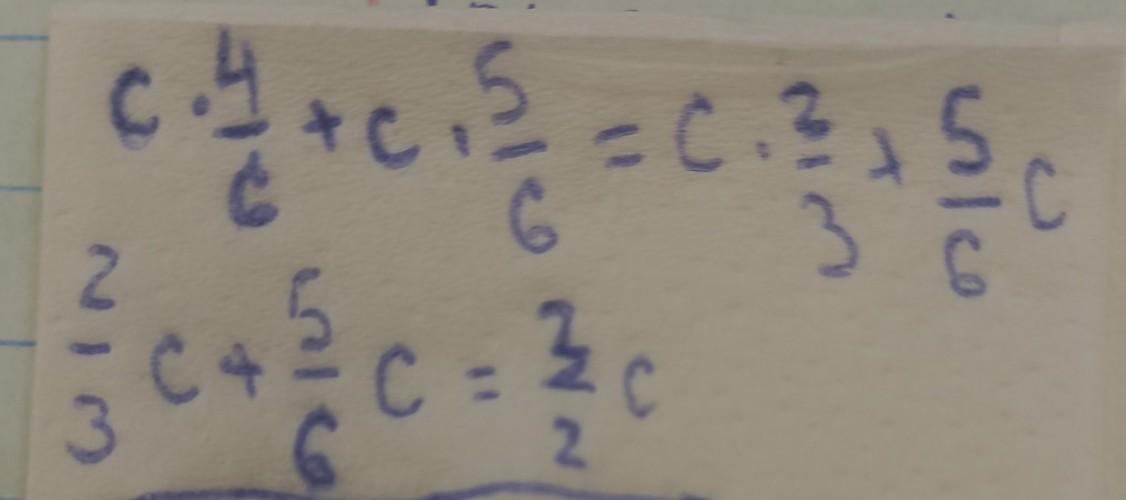 c · 4/6 + c · 5/6 = c · 2/3 + 5/6 c
2/3 c + 5/6 c = 3/2 c